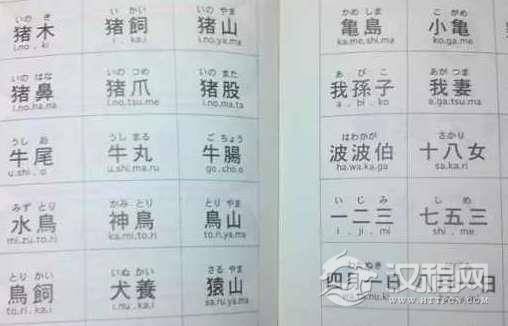 いの き
猪木
i.no . ki
い かい
猪飼
i . ka.i
いの やま
猪山
i.no.ya.ma
かめ しま
亀島
ka.me.shi.ma
こ がめ
小亀
ko.ga.me
いの はな
猪鼻
i.no.ha.na
いの つめ
猪爪
i.no.tsu.me
いの また
猪股
i.no.ma.ta
あ び こ
我孫子
a . bi . ko
あが つま
我妻
a.ga.tsu.ma
うし お
牛尾
u.shi . o
うし まる
牛丸
u.shi.ma.ru
ご ちょう
牛腸
go.cho.o
はわかが
波波伯
ha.wa.ka.ga
さかり
十八女
sa.ka.ri
みず とり
水鳥
mi.zu.to.ri
かみ とり
神鳥
ka.mi.to.ri
とり やま
鳥山
to.ri.ya.ma
い じ み
一二三
i . ji . mi
し め
七五三
shi . me
とり かい
鳥飼
to.ri.ka.i
いぬ かい
犬養
i.nu . ka.i
さる やま
猿山
sa.ru.ya.ma
四月一日
日
汉程网
WWW.HTTPCN.COM